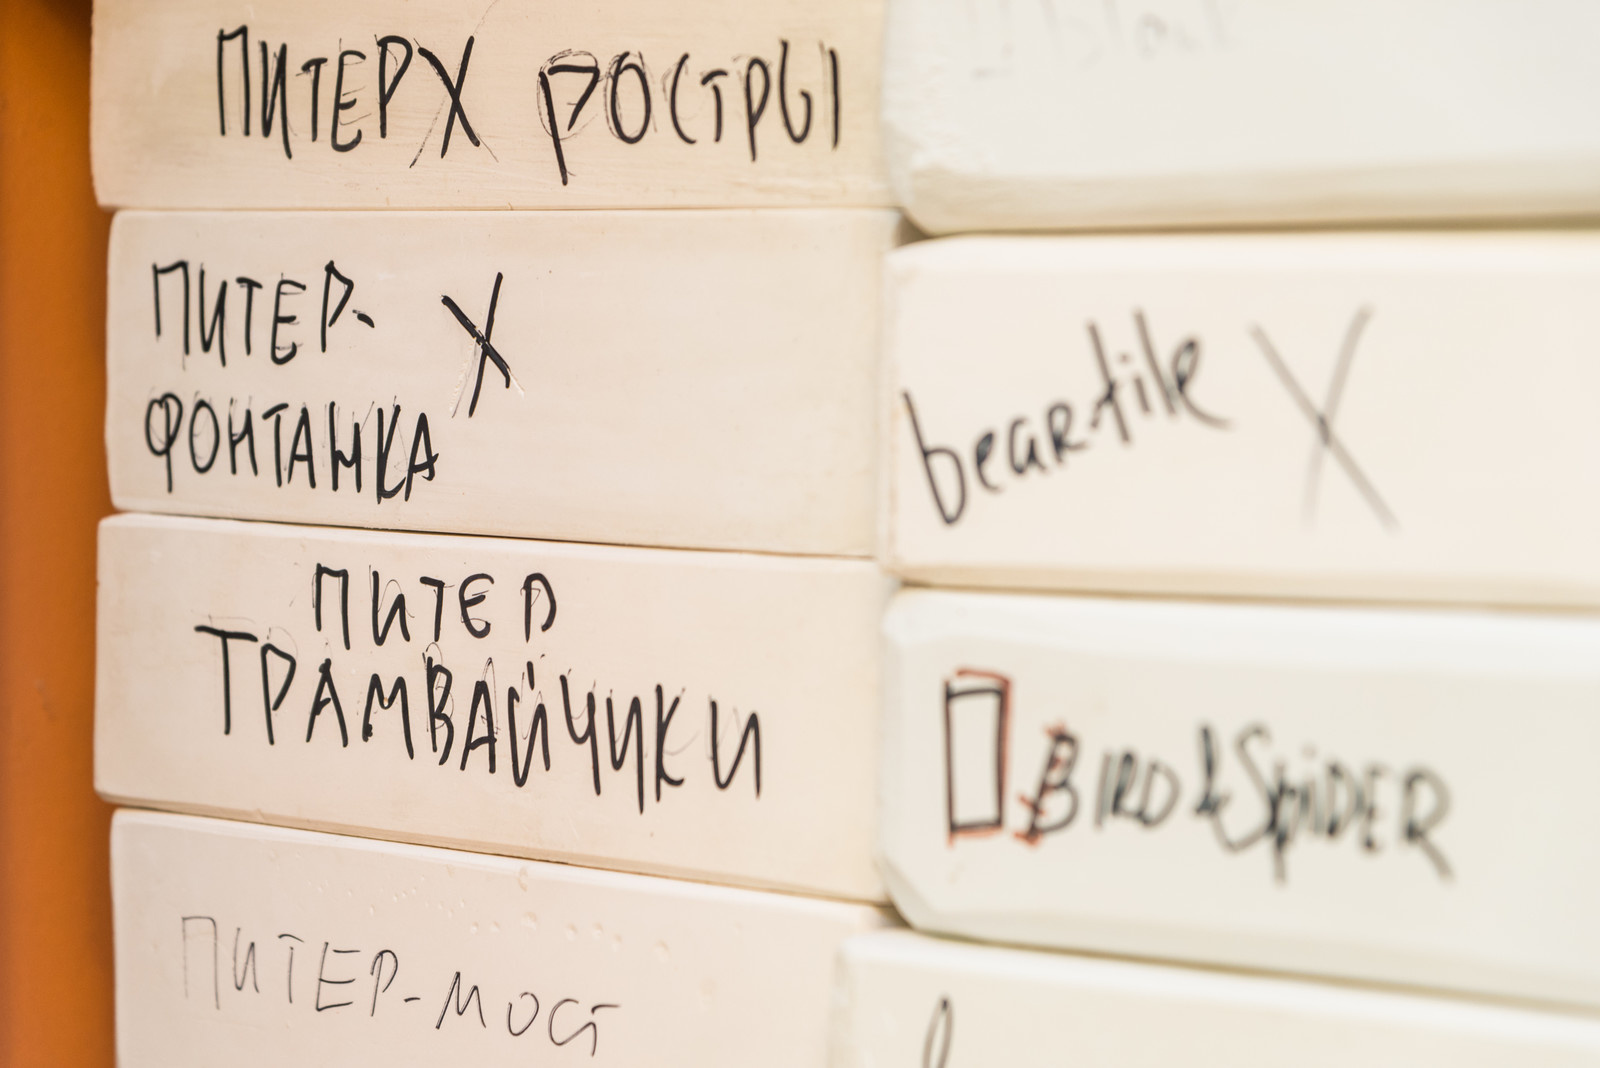 ПИТЕР X РОСТРЫ
ПИТЕР- X
ФОНТАНКА
ПИТЕР
ТРАМВАЙЧИКИ
ПИТЕР-МОСТ
bear-tile X
BIRD & SPiDER